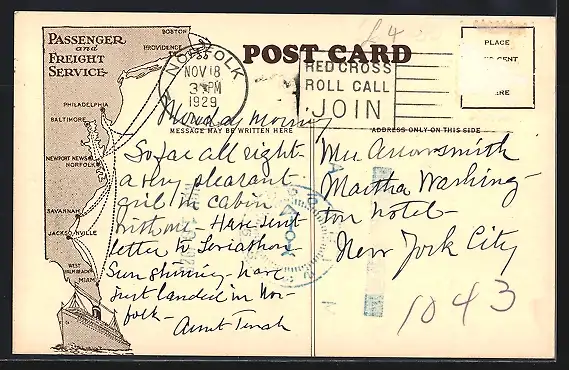 PASSENGER
and
FREIGHT
SERVICE
BOSTON
PROVIDENCE
PHILADELPHIA
BALTIMORE
NEWPORT NEWS
NORFOLK
SAVANNAH
JACKSONVILLE
WEST
PALM BEACH
MIAMI
NORFOLK
NOV 18
3 PM
1929
POST CARD
RED CROSS
ROLL CALL
JOIN
£4
PLACE
CENT
HERE
MESSAGE MAY BE WRITTEN HERE
ADDRESS ONLY ON THIS SIDE
Monday Morning
So far all right-
a very pleasant
girl in cabin
with me - Have sent
letter to Leviathan
Sun shining - have
just landed in Nor-
folk -
Aunt
Arrowsmith
Martha Washing-
ton Hotel -
New York City
1043